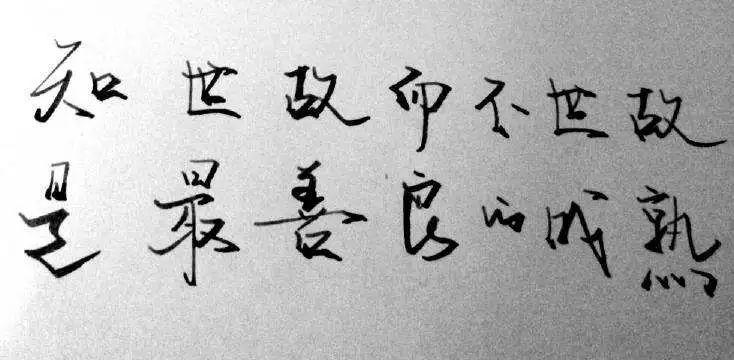 知世故而不世故
是最善良的成熟